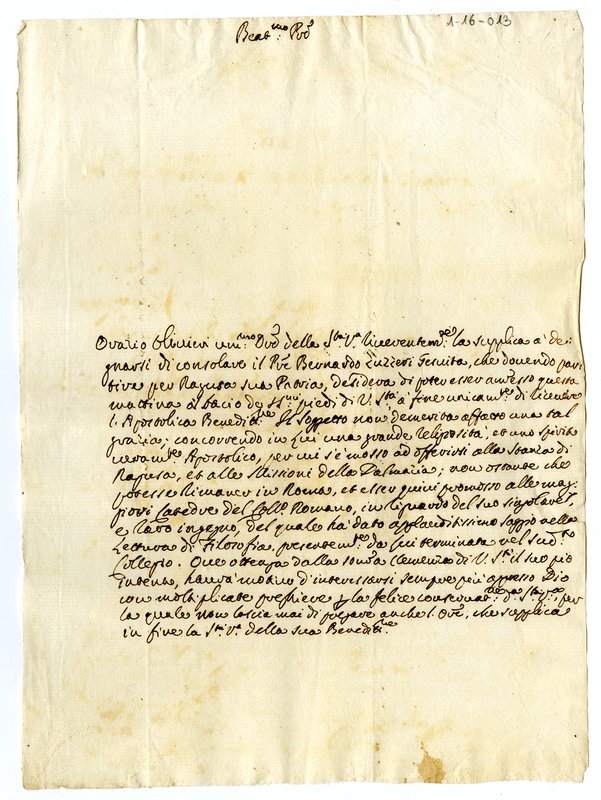 1-16-013
Beat.mo P̃re
Orazio Olivieri umi.mo Ore della S.tà V.a riverentem.te la supplica à de-
gnarsi di consolare il P̃re Bernardo Zuzzeri Gesuita, che dovendo par-
tire per Ragusa sua Patria, desidera di poter esser amesso questa
mattina al bacio de SS.mi piedi di V. S.tà à fine unicam.te di ricevere
l'Apostolica Benedit.ne Il Soggetto non demerita affatto una tal
grazia; concorrendo in lui una grande religiosità, et uno spirito
veram.te Apostolico, per cui s'è mosso ad offerirsi alla stanza di
Ragusa, et alle Missioni della Dalmazia; non ostante che
potesse rimaner in Roma, et esser quivi promosso alle mag-
giori Catedre del Coll.o Romano, in riguardo del suo singolare,
e raro ingegno, del quale hà dato applauditissimo saggio nella
Lettura di Filosofia, presentem.te da lui terminata nel sud.to
Collegio. Che ottenga dalla somma Clemenza di V. S.tà il suo pio
intento, haurà motivo d'interessarsi sempre più appresso Dio
con moltiplicate preghiere p la felice conservat.ne d. S.tà V.a, per
la quale non lascia mai di pregare anche l'Ore, che supplica
in fine la S.tà V.a della sua Benedit.ne